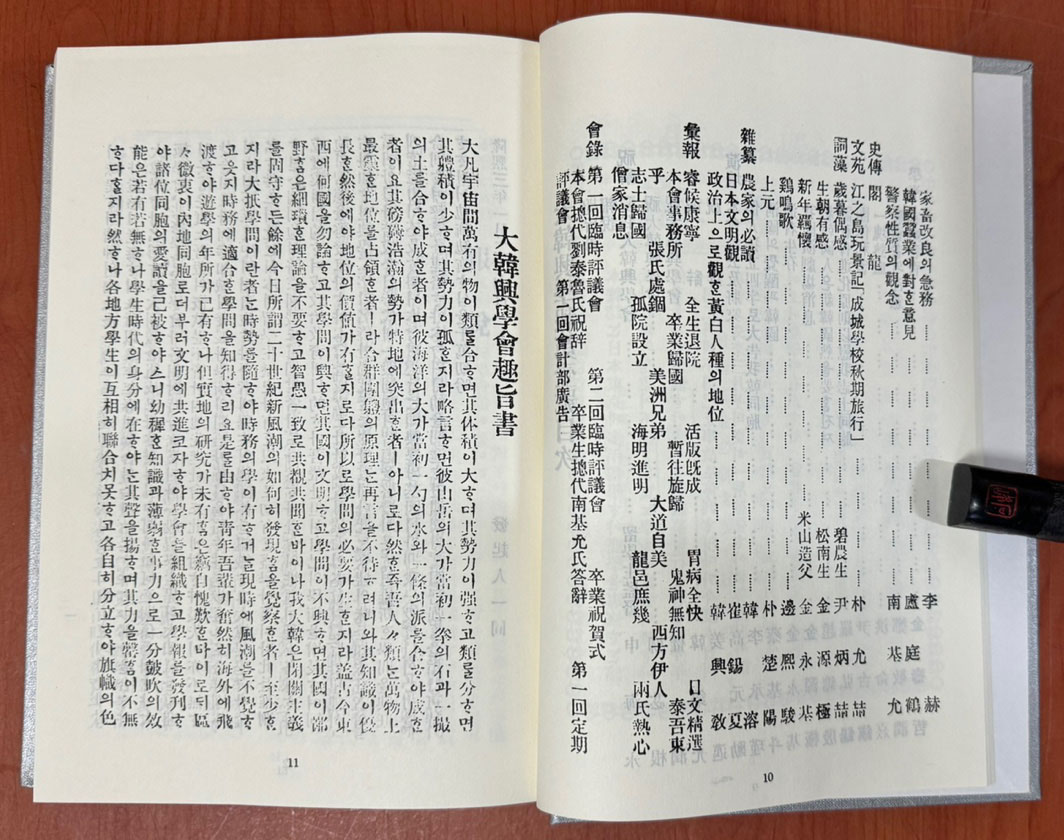 家畜改良의急務 …… 李 赫
韓國蠶業에對ᄒᆞᆫ意見 …… 盧庭鶴
警察性質의觀念 …… 南基允
史傳 閣龍
文苑 江之島玩景記「成城學校秋期旅行」 …… 朴允喆
詞藻 歲暮偶感 …… 碧農生 尹炳喆
生朝有感 …… 松南生 金源極
新年羈懷 …… 米山造父 金永基
鷄鳴歌 …… 邊熙駿
上元 …… 朴楚陽
雜纂 農家의必讀 …… 韓 溶
日本文明觀 …… 崔錫夏
政治上으로觀ᄒᆞᆫ黃白人種의地位 …… 韓興敎
彙報 睿候康寧 全生退院 活版旣成 胃病全快 日文精選
本會事務所 卒業歸國 暫往旋歸 鬼神無知 泰吾東
乎 張氏處錮 美洲兄弟 大道自美 西方伊人
志士歸國 孤院設立 海明進明 龍邑庶幾 兩氏熱心
僧家消息
會錄 第一回臨時評議會 第二回臨時評議會 卒業祝賀式
本會摠代劉泰魯氏祝辞 卒業生摠代南基允氏答辭 第一回定期
評議會 第一回會計部廣告
10
大韓興學會趣旨書
大凡宇宙間萬有의物이類ᄅᆞᆯ合ᄒᆞ면其体積이大ᄒᆞ며其勢力이强ᄒᆞ고類를分ᄒᆞ면
其體積이少ᄒᆞ며其勢力이孤ᄒᆞᆫ지라略言ᄒᆞ면彼山岳의大가當初一拳의石과一撮
의土를合ᄒᆞ야成ᄒᆞᆫ者이며彼海洋의大가當初一勺의水와一條의派를合ᄒᆞ야成ᄒᆞᆫ
者이요其磅礡浩瀚의勢가特地에突出ᄒᆞᆫ者ㅣ아니로다然ᄒᆞᆫ즉吾人人類ᄂᆞᆫ萬物上
最靈ᄒᆞᆫ地位를占領ᄒᆞᆫ者ㅣ라合群團體의原理ᄂᆞᆫ再言을不待ᄒᆞ려니와其知識이優
長ᄒᆞᆫ然後에야地位의價値가有ᄒᆞᆯ지로다所以로學問의必要가生ᄒᆞᆫ지라盖古今東
西에何國을勿論ᄒᆞ고其學問이興ᄒᆞ면其國이文明ᄒᆞ고學問이不興ᄒᆞ면其國이鄙
野ᄒᆞᆷ은細瑣ᄒᆞᆫ理論을不要ᄒᆞ고智愚一致로共覩共聞ᄒᆞᆫ바이나我大韓은閉關主義
를固守ᄒᆞ든餘에今日所謂二十世紀新風潮의如何히發現ᄒᆞᆷ을覺察ᄒᆞᆫ者ㅣ至少ᄒᆞᆫ
지라大抵學問이란者ᄂᆞᆫ時勢를隨ᄒᆞ야時務의學이有ᄒᆞ거늘現時에風潮를不覺ᄒᆞ
고읏지時務에適合ᄒᆞᆫ學問을知得ᄒᆞ리요是로由ᄒᆞ야靑年吾輩가奮然히海外에飛
渡ᄒᆞ야遊學의年所가已有ᄒᆞ나但實地의研究가未有ᄒᆞᆷ은竊自愧歎ᄒᆞᆫ바이로ᄃᆡ區
々微衷이內地同胞로더부러文明에共進코자ᄒᆞ야學會를組織ᄒᆞ고學報를發刊ᄒᆞ
야諸位同胞의愛讀을已被ᄒᆞ얏스니幼穉ᄒᆞᆫ知識과薄弱ᄒᆞᆫ事力으로一分皷吹의效
能은若有若無ᄒᆞ나學生時代의身分에在ᄒᆞ야ᄂᆞᆫ其聲을揚ᄒᆞ며其力을罄ᄒᆞᆷ이不無
ᄒᆞ다ᄒᆞᆯ지라然ᄒᆞ나各地方學生이互相히聯合치못ᄒᆞ고各自히分立ᄒᆞ야旗幟의色
11